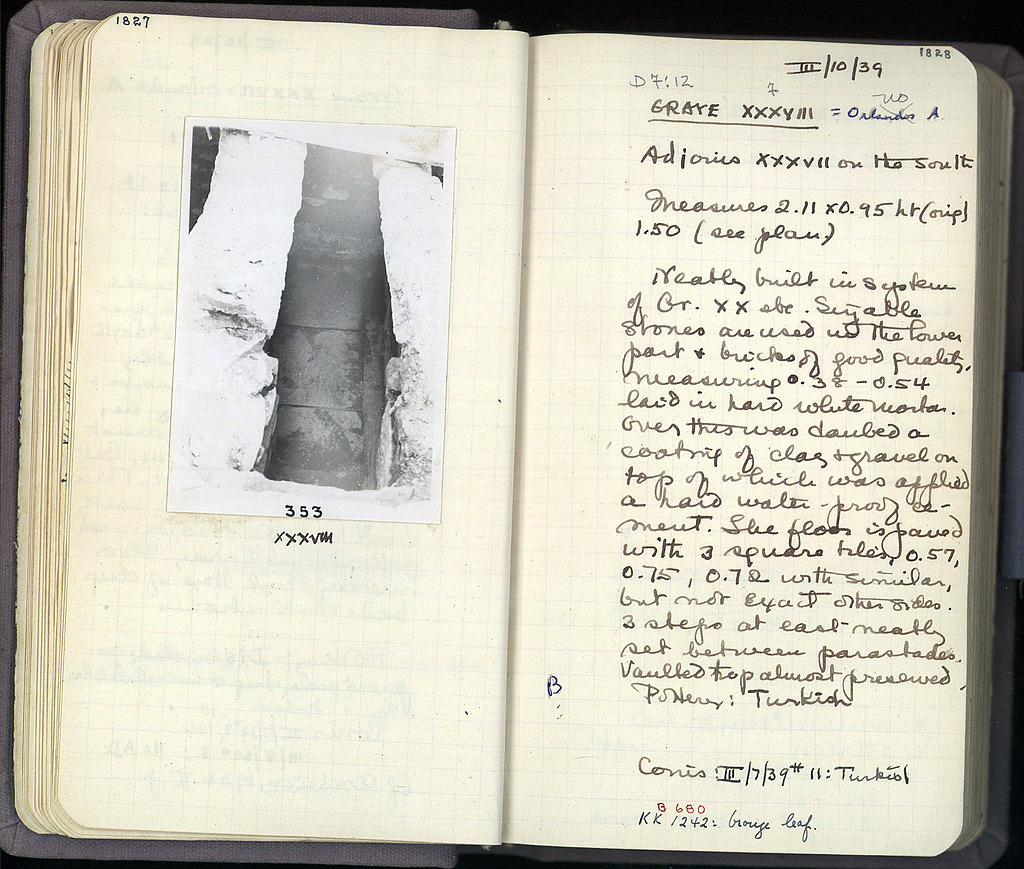 1827
353
XXXVIII
1828
III/10/39
D 7:12
7
no
GRAVE XXXVIII = Orlandos A
Adjoins XXXVII on the south
Measures 2.11 x 0.95 ht (orig)
1.50 (see plan)
Neatly built in system
of Gr. XX etc. Sizable
stones are used in the lower
part + bricks of good quality,
measuring 0.38 - 0.54
laid in hard white mortar.
Over this was daubed a
coating of clay + gravel on
top of which was applied
a hard water-proof ce-
ment. The floor is paved
with 3 square tiles, 0.57,
0.75, 0.72 with similar,
but not exact other sides.
3 steps at east neatly
set between parastades.
Vaulted top almost preserved.
B
Pottery: Turkish
Coins: III/7/39 # 11: Turkish
B 680
KK 1242: bronze leaf.